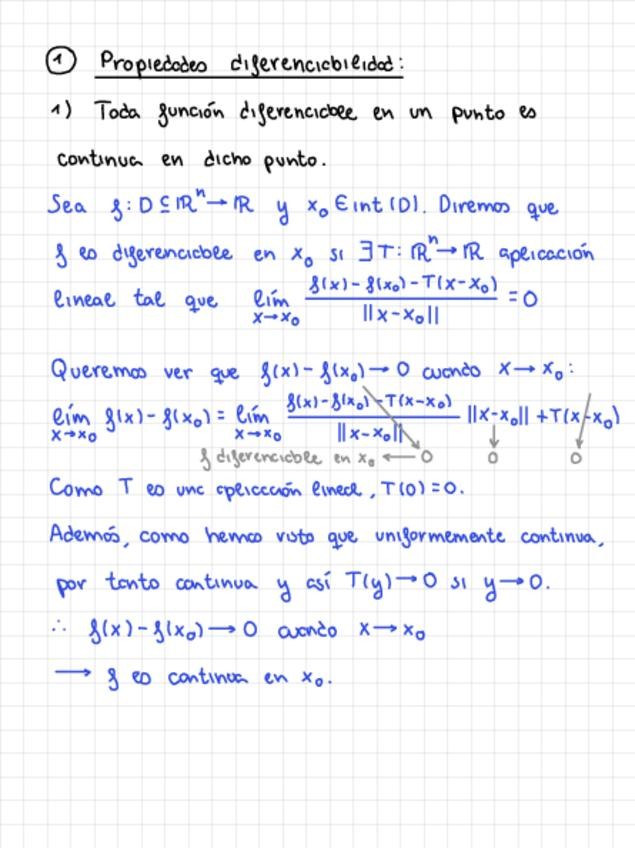 ① Propiedades diferenciabilidad:
1) Toda función diferenciable en un punto es
continua en dicho punto.
Sea f: D ⊆ ℝⁿ → ℝ y x₀ ∈ int (D). Diremos que
f es diferenciable en x₀ si ∃ T: ℝⁿ → ℝ aplicación
lineal tal que lím_{x→x₀} (f(x) - f(x₀) - T(x-x₀)) / ||x-x₀|| = 0
Queremos ver que f(x) - f(x₀) → 0 cuando x → x₀:
lím_{x→x₀} f(x) - f(x₀) = lím_{x→x₀} (f(x) - f(x₀) - T(x-x₀)) / ||x-x₀|| ||x-x₀|| + T(x-x₀)
f diferenciable en x₀ ← 0 0 0
Como T es una aplicación lineal, T(0) = 0.
Además, como hemos visto que uniformemente continua,
por tanto continua y así T(y) → 0 si y → 0.
∴ f(x) - f(x₀) → 0 cuando x → x₀
→ f es continua en x₀.